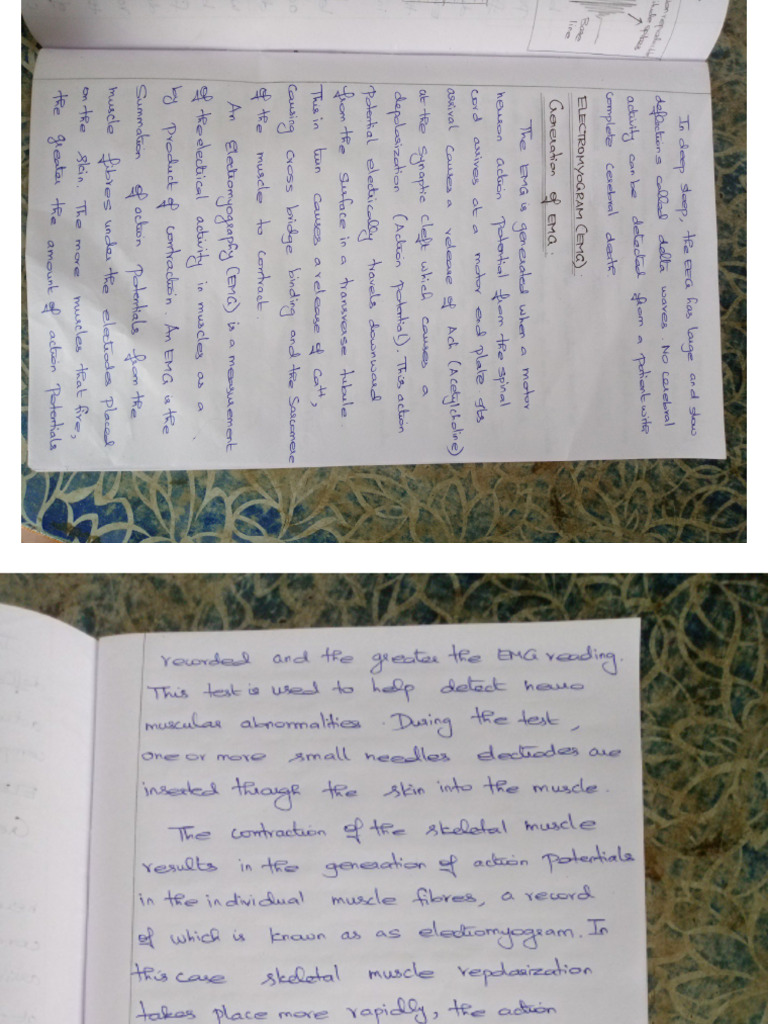 Base
line
In deep sleep, the EEG has large and slow
deflections called delta waves. No cerebral
activity can be detected from a patient with
complete cerebral death
ELECTROMYOGRAM (EMG):
Generation of EMG:
The EMG is generated when a motor
neuron action potential from the spinal
cord arrives at a motor end plate. Its
arrival causes a release of Ach (Acetylcholine)
at the synaptic cleft which causes a
depolarization (Action Potential). This action
Potential electrically travels downward
from the surface in a transverse tubule.
This in turn causes a release of Ca++,
causing cross bridge binding and the Sarcomere
of the muscle to contract.
An Electromyography (EMG) is a measurement
of the electrical activity in muscles as a
by product of contraction. An EMG is the
Summation of action Potentials from the
muscle fibres under the electrodes placed
on the skin. The more muscles that fire,
the greater the amount of action Potentials
recorded and the greater the EMG reading.
This test is used to help detect neuro
muscular abnormalities. During the test,
one or more small needles electrodes are
inserted through the skin into the muscle.
The contraction of the skeletal muscle
results in the generation of action potentials
in the individual muscle fibres, a record
of which is known as as electromyogram. In
this case skeletal muscle repolarization
takes place more rapidly, the action